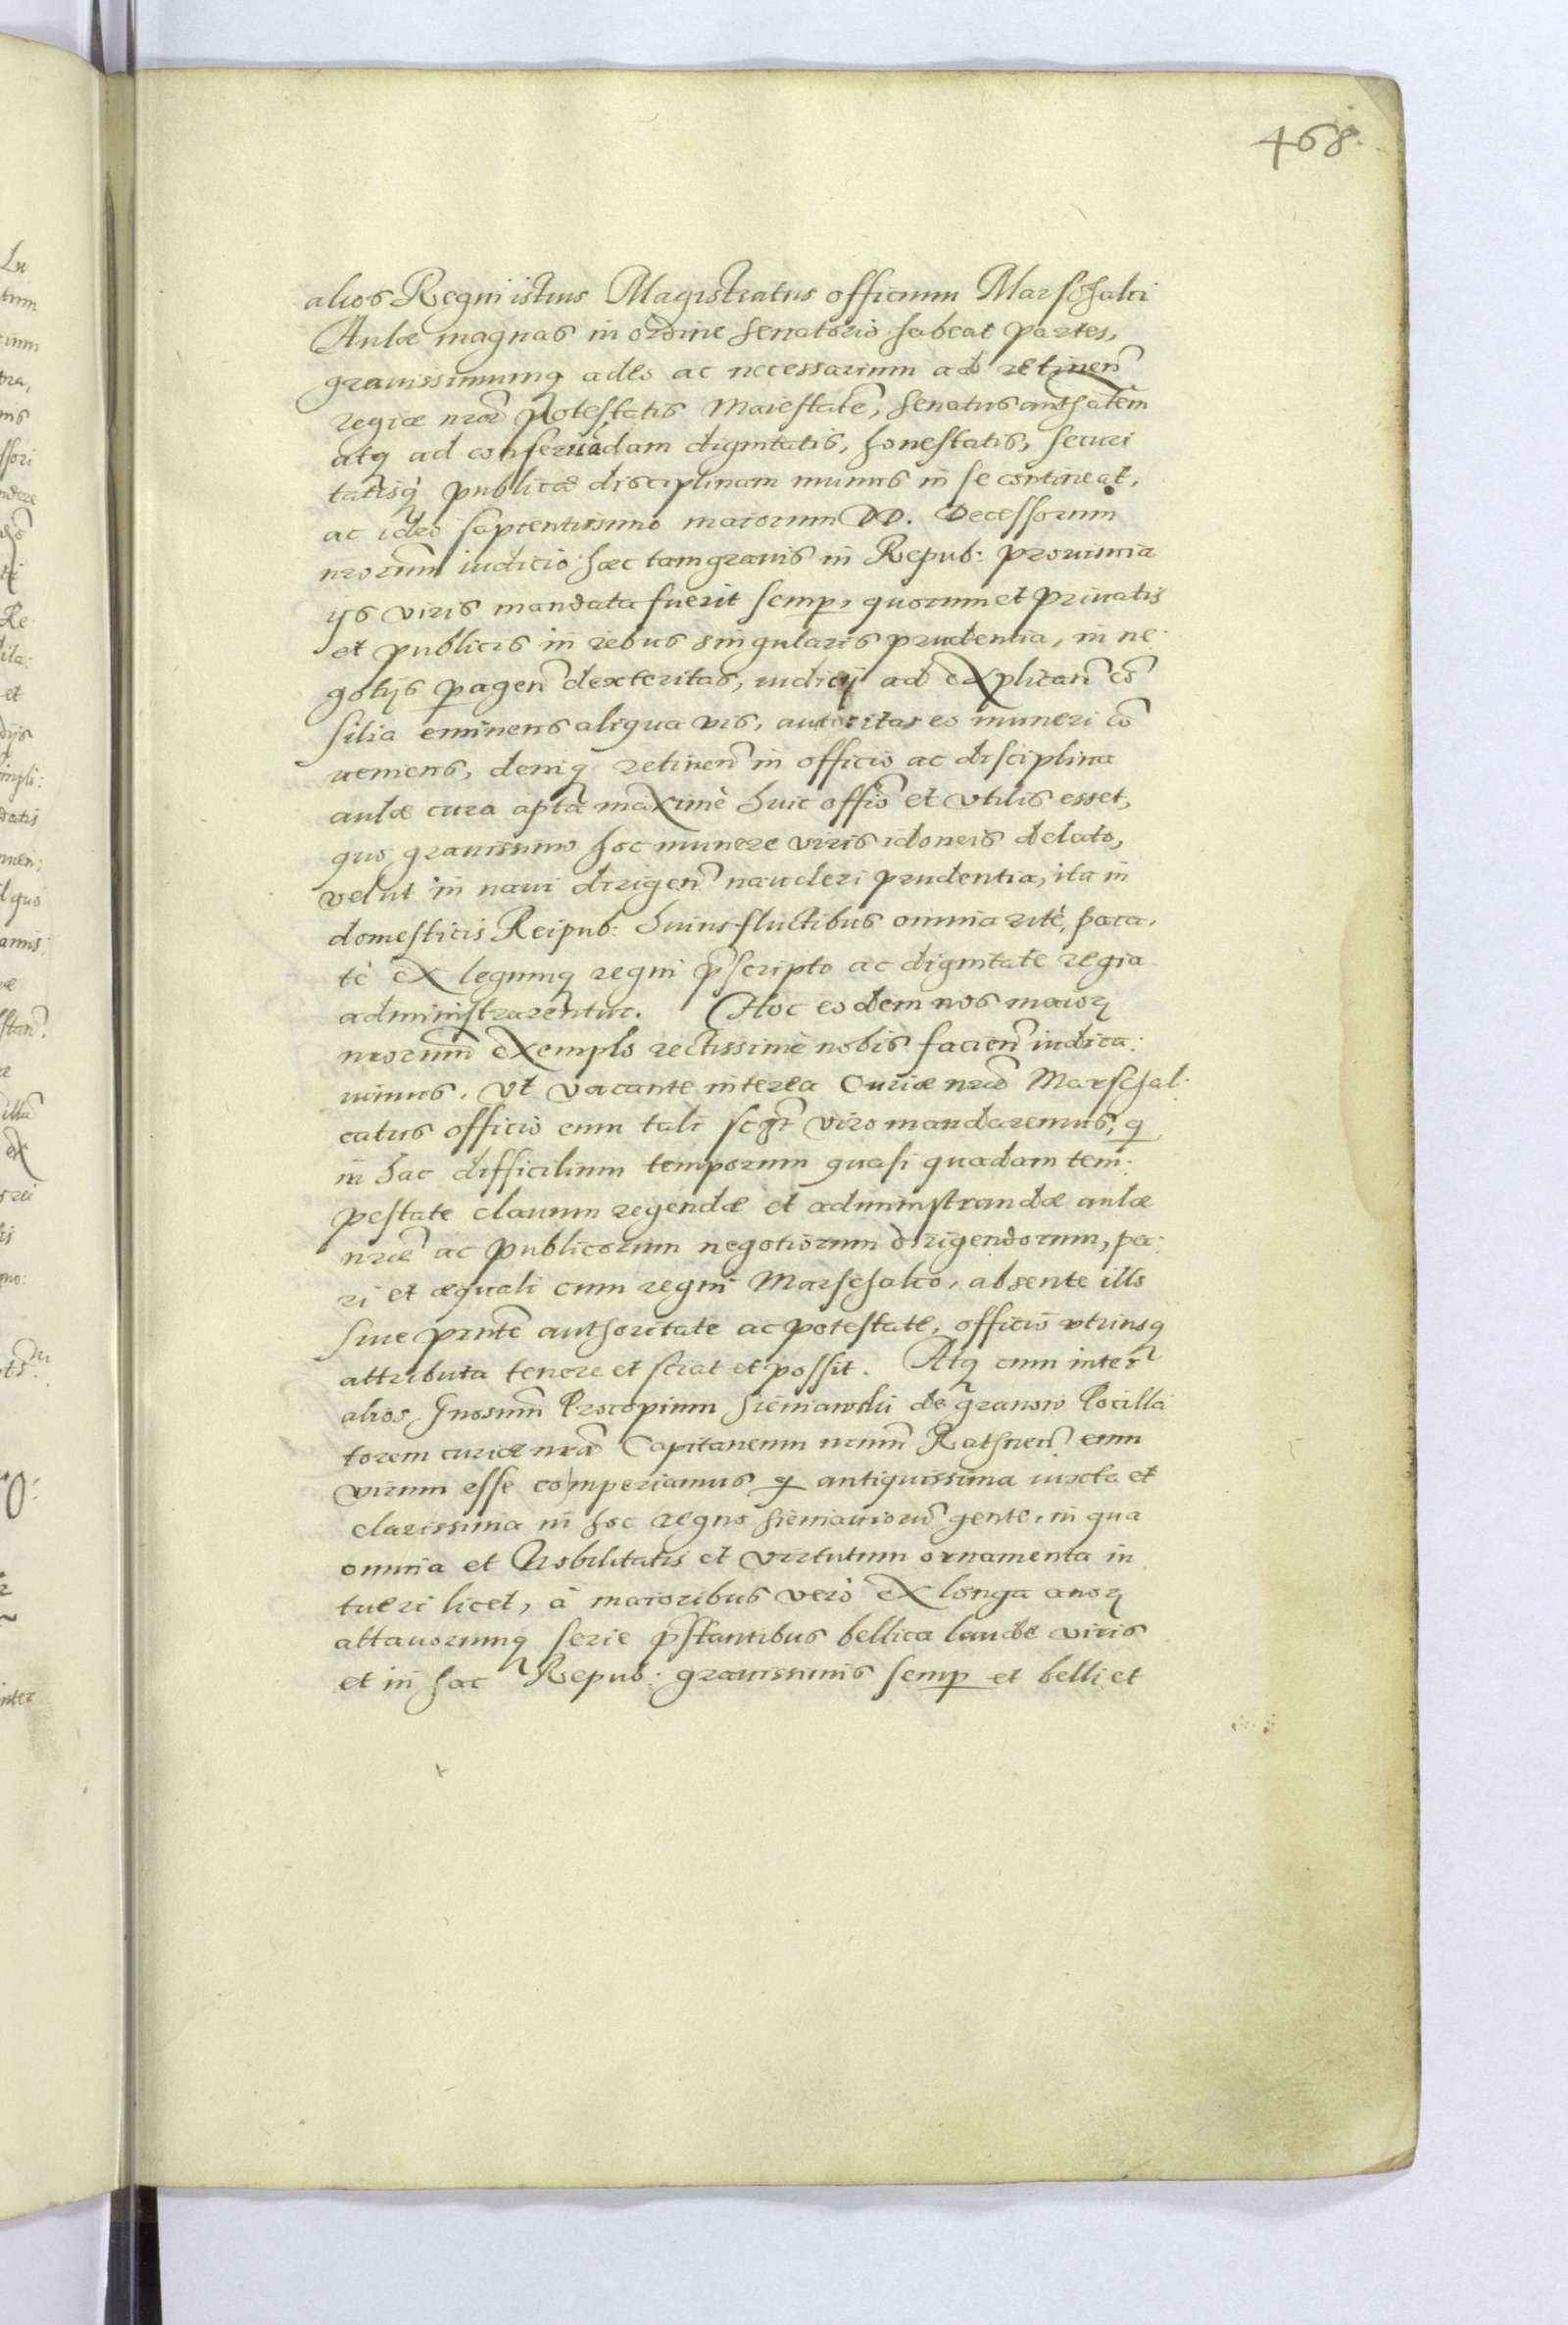 468.
alios Regni istius Magistratus officium Marschalci
Aulæ magnas in ordine senatorio habeat partes,
grauissimumq̃ adeo ac necessarium ad retinen̄
regiæ nrae Potestatis Maiestatē, Senatus authatem
atq̃ ad conseruādam dignitatis, honestatis, securi
tatisq̃ publicæ disciplinam munus in se contineat,
ac ideo sapientissimo maiorum DD. Decessorum
nrorum iudicio hæc tam grauis in Repub: prouincia
ijs viris mandata fuerit semp, quorum et priuatis
et publicis in rebus singularis prudentia, in ne
gotijs pagen̄ dexteritas, iudicij ad explican̄ cō
silia eminens aliqua vis, autoritas eo muneri cō
ueniens, deniq̃ retinen̄ in officio ac disciplina
aulæ cura apta maximè huic offio et vtilis esset,
quo grauissimo hoc munere viris idoneis delato,
velut in naui dirigen̄ naucleri prudentia, ita in
domesticis Reipub: huius fluctibus omnia ritè, paca.
tè ex legumq̃ regni p̄scripto ac dignitate regia
administrarentur. Hoc eodem nos maiorꝝ
nrorum exemplo rectissimè nobis facien̄ iudica:
uimus. Vt vacante interea Curiæ nræ Marschal:
catus officio eum tali viro mandaremus, q
in hac difficilium temporum quasi quadam tem:
pestate clauum regendæ et administrandæ aulæ
nræ ac publicorum negotiorum dirigendorum, pa:
ri et æquali cum regni Marschalco, absente illo
siue pnte authoritate ac potestate, officio vtriusq̃
attributa tenere et sciat et possit. Atq̃ cum inter
alios Gnosum Procopium Sieniawski de Granow Pocilla
torem curiæ nræ Capitaneum nrum Rathnen̄ eum
virum esse comperiamus q antiquissima iuxta et
clarissima in hoc regno Sieniauiorū gente, in qua
omnia et Nobilitatis et virtutum ornamenta in
tueri licet, à maioribus verò ex longa auorꝝ
attauorumq̃ serie p̄stantibus bellica laude viris
et in hac Repub: grauissimis semp et belli et